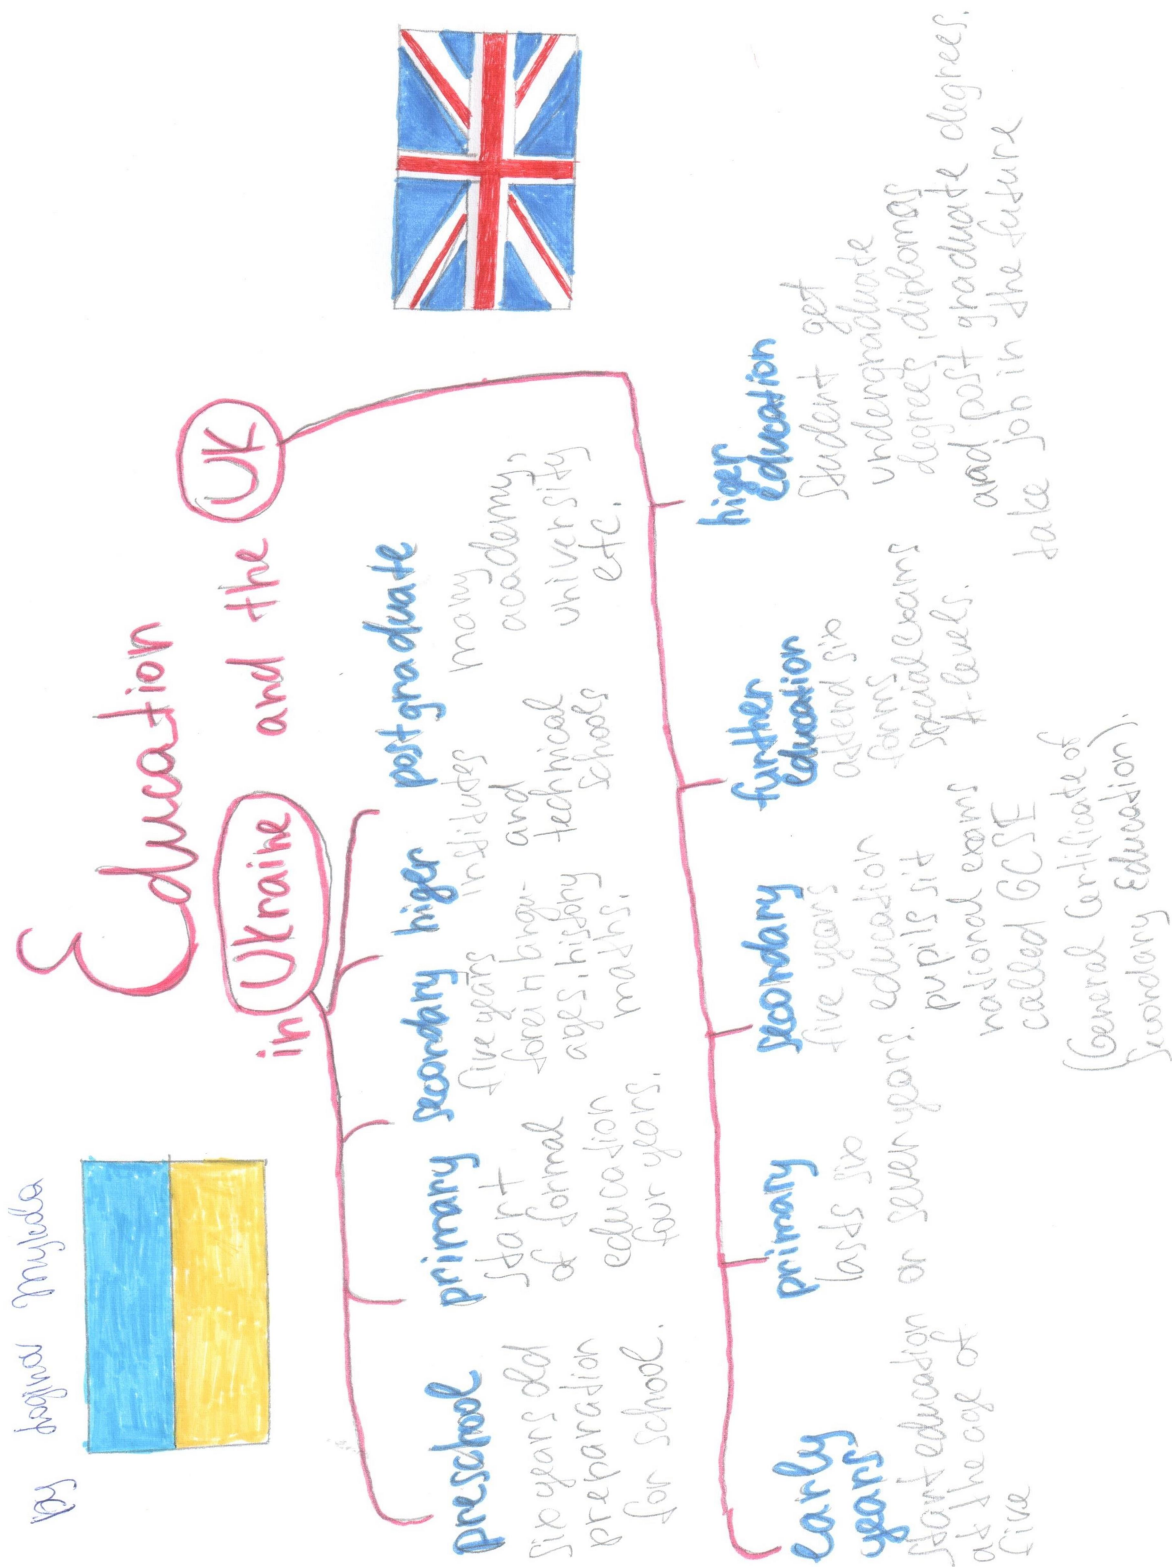 by
Education
in Ukraine and the UK
preschool
six years old
preparation
for school.
primary
start
of formal
education
four years.
secondary
five years
forein langu-
ages, history
maths.
higer
institutes
and
technical
schools
postgraduate
many
academy,
university,
etc.
Early
years
start education
at the age of
five
primary
lasts six
or seven years.
secondary
five years
education
pupils sit
national exams
called GCSE
(General Certificate of
Secondary Education).
further
education
attend six
forms.
special exams
A-levels.
higer
Education
Student get
undergraduate
degrees, diplomas
and post graduate degrees.
take job in the future